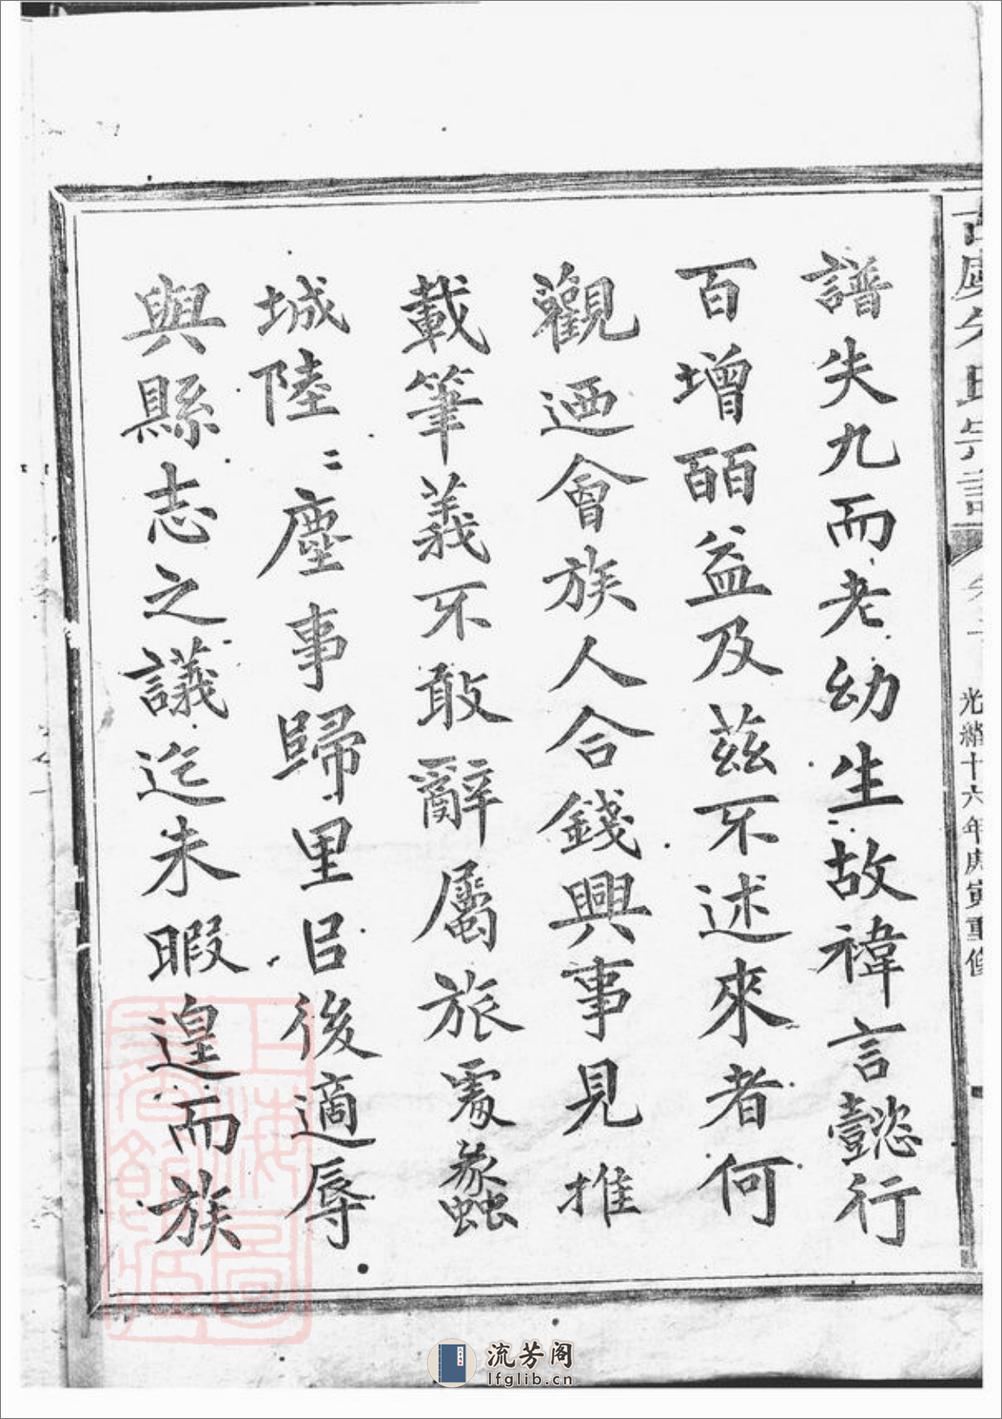 光緒十六年庚寅重修
譜失九而老幼生故褘言懿行
百增皕益及茲不述來者何
觀迺會族人合錢興事見推
載筆義不敢辭屬旅處蠡
城陸二塵事歸里㠯後適辱
與縣志之議迄未暇遑而族
流芳阁
lfglib.cn